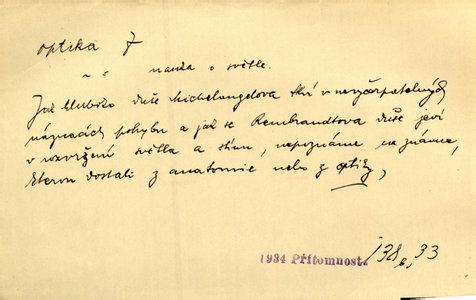 optika f
~ " nauka o světle.
Jak hluboko duše Michelangelova tkví v nevyčerpatelných
názvucích pohybu a jak se Rembrandtova duše jeví
v rozvržení světla a stínu, nepoznáme ze známek,
kterou dostali z anatomie nebo z optiky,
1934 Přítomnost. 138, 33